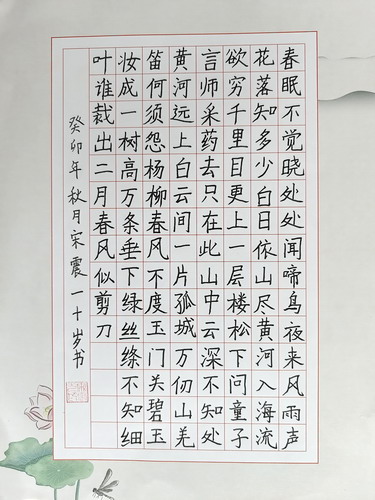 春眠不觉晓处处闻啼鸟夜来风雨声
花落知多少白日依山尽黄河入海流
欲穷千里目更上一层楼松下问童子
言师采药去只在此山中云深不知处
黄河远上白云间一片孤城万仞山羌
笛何须怨杨柳春风不度玉门关碧玉
妆成一树高万条垂下绿丝绦不知细
叶谁裁出二月春风似剪刀
癸卯年秋月宋震一十岁书